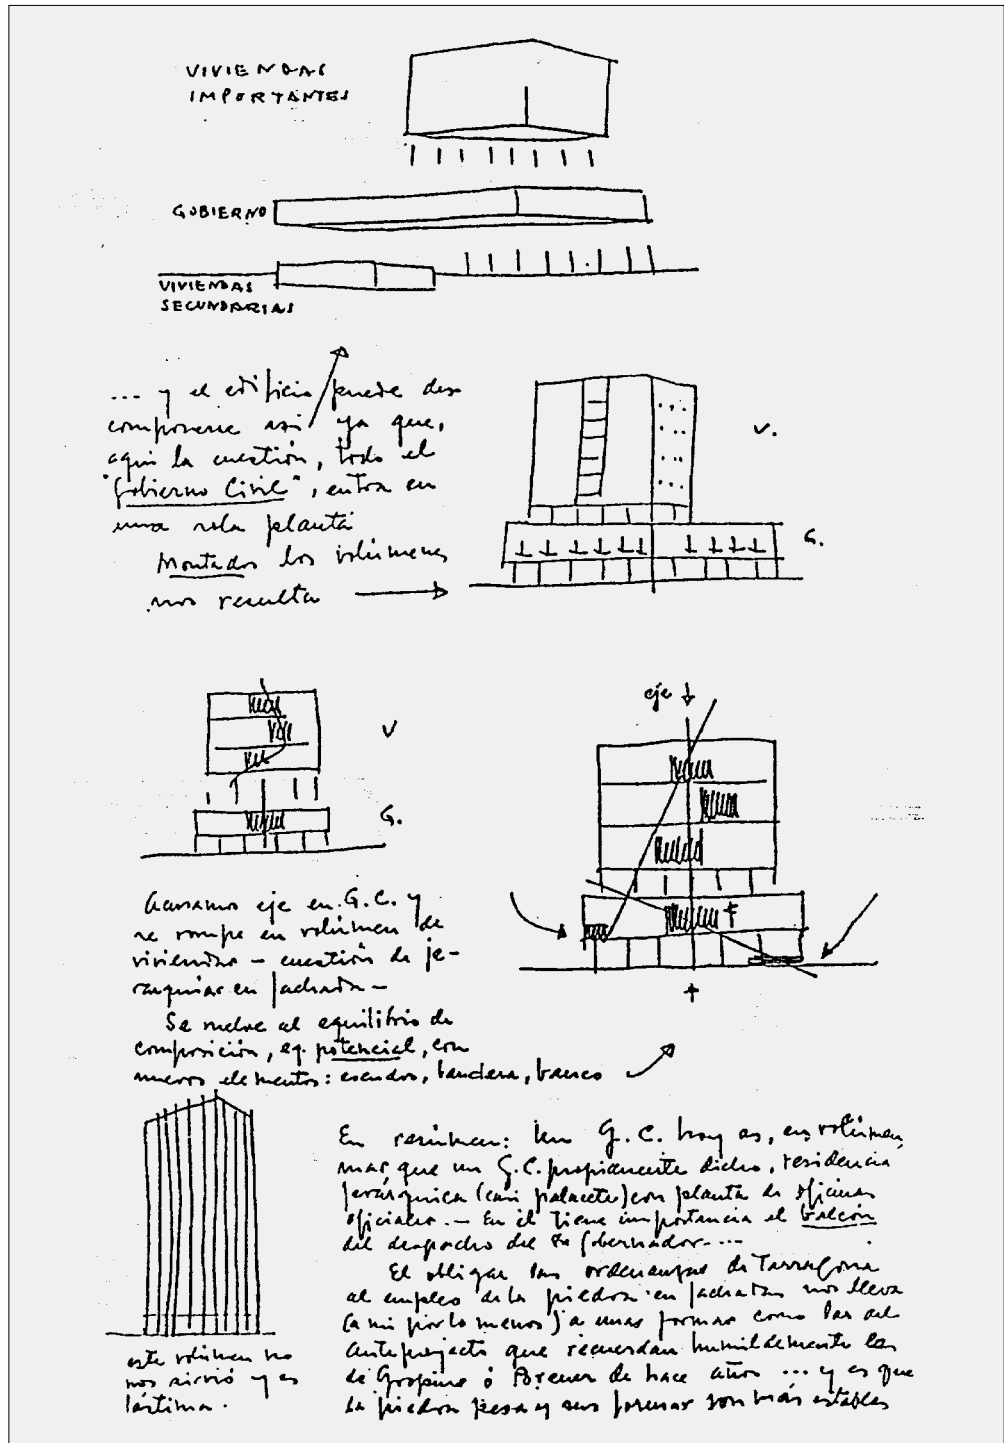 VIVIENDAS
IMPORTANTES
GOBIERNO
VIVIENDAS
SECUNDARIAS
... y el edificio puede des
componerse así ya que,
aquí la cuestión, todo el
"Gobierno Civil", entra en
una sola planta
Montados los volúmenes
nos resulta
V.
G.
V
G.
eje
Acusamos eje en G.C. y
se rompe en volúmen de
viviendas - cuestión de je-
rarquías en fachada -
Se vuelve al equilibrio de
composición, eq. potencial, con
nuevos elementos: escudos, bandera, banco
este volúmen no
nos sirvió y es
lástima.
En resúmen: un G.C. hoy es, en volúmen,
mas que un G.C. propiamente dicho, residencia
jerárquica (casi palacete) con planta de oficinas
oficiales. - En él tiene importancia el balcón
del despacho del Sr Gobernador....
El obligar las ordenanzas de Tarragona
al empleo de la piedra en fachadas nos lleva
(a mi por lo menos) a unas formas como las del
anteproyecto que recuerdan humildemente las
de Gropius ó Breuer de hace años ... y es que
la piedra pesa y sus formas son más estables